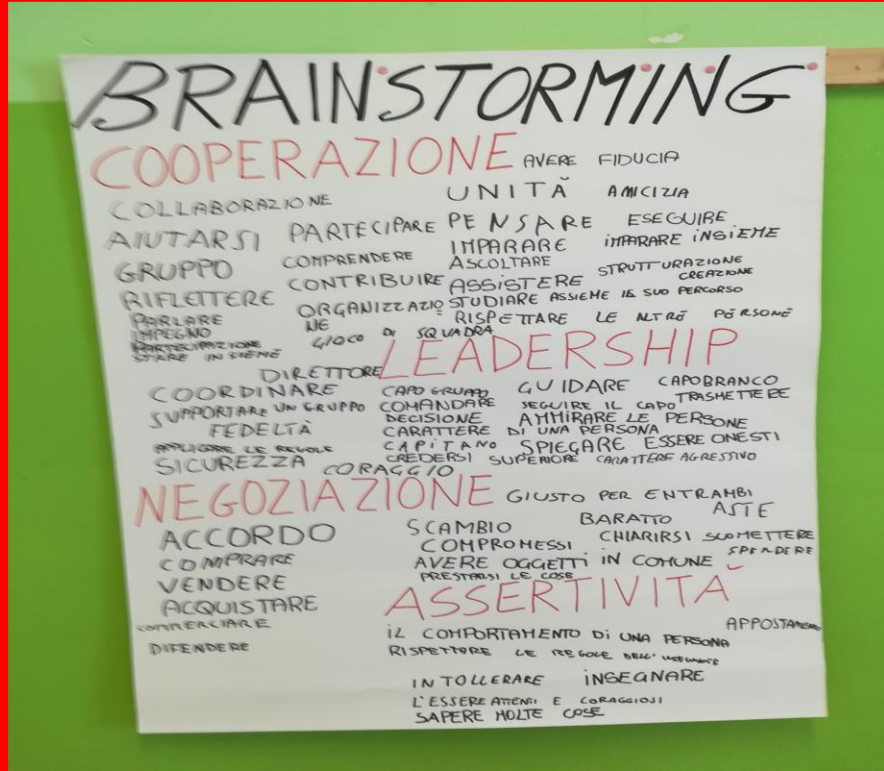 BRAINSTORMING
COOPERAZIONE AVERE FIDUCIA
COLLABORAZIONE UNITÀ AMICIZIA
AIUTARSI PARTECIPARE PENSARE ESEGUIRE
IMPARARE IMPARARE INSIEME
GRUPPO COMPRENDERE ASCOLTARE
RIFLETTERE CONTRIBUIRE ASSISTERE STRUTTURAZIONE
CREAZIONE
PARLARE ORGANIZZAZIO STUDIARE ASSIEME IL SUO PERCORSO
IMPEGNO NE RISPETTARE LE ALTRE PERSONE
PARTECIPAZIONE GIOCO DI SQUADRA
STARE INSIEME
LEADERSHIP
DIRETTORE
COORDINARE CAPO GRUPPO GUIDARE CAPOBRANCO
SUPPORTARE UN GRUPPO COMANDARE SEGUIRE IL CAPO TRASMETTERE
FEDELTÀ DECISIONE AMMIRARE LE PERSONE
CARATTERE DI UNA PERSONA
APPLICARE LE REGOLE CAPITANO SPIEGARE ESSERE ONESTI
SICUREZZA CORAGGIO CREDERSI SUPERIORE CARATTERE AGRESSIVO
NEGOZIAZIONE GIUSTO PER ENTRAMBI
ACCORDO SCAMBIO BARATTO ASTE
COMPRARE COMPROMESSI CHIARIRSI
VENDERE AVERE OGGETTI IN COMUNE SPENDERE
ACQUISTARE PRESTARSI LE COSE
COMMERCIARE
DIFENDERE
ASSERTIVITÀ
IL COMPORTAMENTO DI UNA PERSONA
RISPETTARE LE REGOLE DELL'
INTOLLERARE INSEGNARE
L'ESSERE ATTENTI E CORAGGIOSI
SAPERE MOLTE COSE